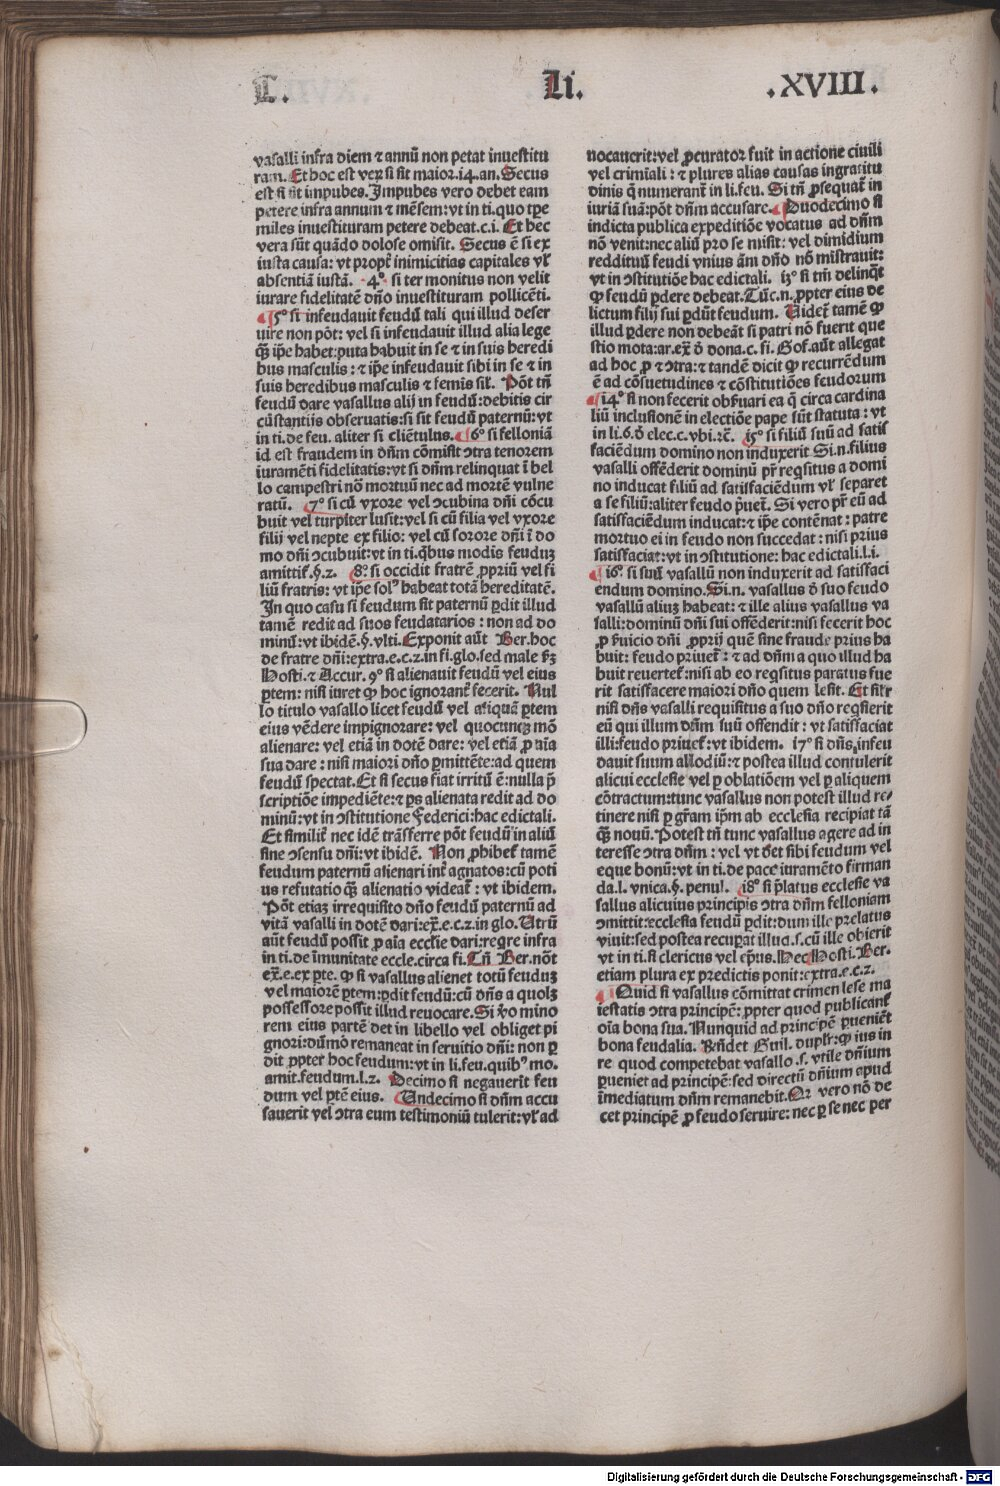 L.
Li.
.XVIII.
vasalli infra diem ⁊ annū non petat inuestitu
ram. Et hoc est verꝝ si sit maior.14.an. Secus
est si sit impubes. Impubes vero debet eam
petere infra annum ⁊ mēsem: vt in ti. quo tp̄e
miles inuestituram petere debeat.c.i. Et hec
vera sūt quādo dolose omisit. Secus ē si ex
iusta causa: vt propt̄ inimicitias capitales vl̓
absentiā iustā. 4° si ter monitus non velit
iurare fidelitatē dn̄o inuestituram pollicēti.
5° si infeudauit feudū tali qui illud deser
uire non pōt: vel si infeudauit illud alia lege
q̄ꝫ ip̄e habet: puta habuit in se ⁊ in suis heredi
bus masculis: ⁊ ip̄e infeudauit sibi in se ⁊ in
suis heredibus masculis ⁊ femis sil̓. Pōt tn̄
feudū dare vasallus alij in feudū: debitis cir
cūstantijs obseruatis: si sit feudū paternū: vt
in ti. de feu. aliter si cliētulus. 6° si felloniā
id est fraudem in dn̄m cōmisit ꝯtra tenorem
iuramēti fidelitatis: vt si dn̄m relinquat ī bel
lo campestri nō mortuū nec ad mortē vulne
ratū. 7° si cū vxore vel ꝯcubina dn̄i cōcu
buit vel turpiter lusit: vel si cū filia vel vxore
filij vel nepte ex filio: vel cū sorore dn̄i ī do
mo dn̄i ꝯcubuit: vt in ti. qͥbus modis feuduꝫ
amittit̓.§.2. 8° si occidit fratrē ꝓpriū vel fi
liū fratris: vt ip̄e solꝰ habeat totā hereditatē.
In quo casu si feudum sit paternū ꝑdit illud
tamē redit ad suos feudatarios: non ad do
minū: vt ibidē.§. vlti. Exponit aūt Ber. hoc
de fratre dn̄i: extra.e.c.2. in fi. glo. sed male ẜꝫ
Hosti. ⁊ Accur. 9° si alienauit feudū vel eius
ꝑtem: nisi iuret ꝙ hoc ignorant̓ fecerit. Nul
lo titulo vasallo licet feudū vel aliquā ꝑtem
eius vēdere impignorare: vel quocunqꝫ mō
alienare: vel etiā in dotē dare: vel etiā ꝓ aīa
sua dare: nisi maiori dn̄o ꝑmittēte: ad quem
feudū spectat. Et si secus fiat irritū ē: nulla p̄
scriptiōe impediēte: ⁊ ꝑs alienata redit ad do
minū: vt in ꝯstitutione Federici: hac edictali.
Et similit̓ nec idē trāsferre pōt feudū in aliū
sine ꝯsensu dn̄i: vt ibidē. Non ꝓhibet̓ tamē
feudum paternū alienari int̓ agnatos: cū poti
us refutatio q̄ꝫ alienatio videat̓: vt ibidem.
Pōt etiaꝫ irrequisito dn̄o feudū paternū ad
vitā vasalli in dotē dari: ex̄.e.c.2. in glo. Utrū
aūt feudū possit ꝓ aīa ecclie dari: reqͥre infra
in ti. de īmunitate eccle. circa fi. Tn̄ Ber. nōt
ex̄.e. ex ꝑte. ꝙ si vasallus alienet totū feuduꝫ
vel maiorē ꝑtem: ꝑdit feudū: cū dn̄s a quolꝫ
possessore possit illud reuocare. Si ꝟo mino
rem eius partē det in libello vel obliget pi
gnori: dūmō remaneat in seruitio dn̄i: non ꝑ
dit ꝓpter hoc feudum: vt in li. feu. quibꝰ mo.
amit. feudum.l.2. Decimo si negauerit feu
dum vel ꝑtē eius. Undecimo si dn̄m accu
sauerit vel ꝯtra eum testimoniū tulerit: vl̓ ad
nocauerit: vel ꝓcurator fuit in actione ciuili
vel crimīali: ⁊ plures alias causas ingratitu
dinis q̄ numerant̓ in li. feu. Si tn̄ ꝓsequat̓ in
iuriā suā: pōt dn̄m accusare. Duodecimo si
indicta publica expeditiōe vocatus ad dn̄m
nō venit: nec aliū pro se misit: vel dimidium
reddituū feudi vnius āni dn̄o nō mīstrauit:
vt in ꝯstitutiōe hac edictali. 13° si tm̄ delinqͣt
ꝙ feudū ꝑdere debeat. Tūc.n. ꝓpter eius de
lictum filij sui ꝑdūt feudum. Uidet̓ tamē ꝙ
illud ꝑdere non debeāt si patri nō fuerit que
stio mota: ar. ex̄. ō dona.c. fi. Gof. aūt allegat
ad hoc ꝓ ⁊ ꝯtra: ⁊ tandē dicit ꝙ recurrēdum
ē ad cōsuetudines ⁊ cōstitutiōes feudorum
14° si non fecerit obẜuari ea q̄ circa cardina
liū inclusionē in electiōe pape sūt statuta: vt
in li.6.ō elec.c. vbi.⁊c. 15° si filiū suū ad satis
faciēdum domino non induxerit Si.n. filius
vasalli offēderit dominū pr̄ reqͥsitus a domi
no inducat filiū ad satisfaciēdum vl̓ separet
a se filiū: aliter feudo p̓uet̓. Si vero pr̄ eū ad
satisfaciēdum inducat: ⁊ ip̄e contēnat: patre
mortuo ei in feudo non succedat: nisi prius
satisfaciat: vt in ꝯstitutione: hac edictali.l.i.
16° si suū vasallū non induxerit ad satisfaci
endum domino. Si.n. vasallus ō suo feudo
vasallū aliuꝫ habeat: ⁊ ille alius vasallus va
salli: dominū dn̄i sui offēderit: nisi fecerit hoc
ꝓ ẜuicio dn̄i ꝓprij quē sine fraude prius ha
buit: feudo priuet̓: ⁊ ad dn̄m a quo illud ha
buit reuertet̓: nisi ab eo reqͥsitus paratus fue
rit satisfacere maiori dn̄o quem lesit. Et silr̄
nisi dn̄s vasalli requisitus a suo dn̄o reqͥsierit
eū qui illum dn̄m suū offendit: vt satisfaciat
illi: feudo priuet̓: vt ibidem. 17° si dn̄s infeu
dauit suum allodiū: ⁊ postea illud contulerit
alicui ecclesie vel ꝑ oblatiōem vel ꝑ aliquem
cōtractum: tunc vasallus non potest illud re⸗
tinere nisi ꝑ gr̄am ip̄m ab ecclesia recipiat tā
q̄ꝫ nouū. Potest tn̄ tunc vasallus agere ad in
teresse ꝯtra dn̄m: vel vt det sibi feudum vel
eque bonū: vt in ti. de pace iuramēto firman
da.l. vnica.§. penul. 18° si p̄latus ecclesie va
sallus alicuius principis ꝯtra dn̄m felloniam
ꝯmittit: ecclesia feudū ꝑdit: dum ille prelatus
viuit: sed postea recuꝑat illud.s. cū ille obierit
vt in ti. si clericus vel ep̄us. Hec Hosti. Ber.
etiam plura ex predictis ponit: extra.e.c.2.
Quid si vasallus cōmittat crimen lese ma
iestatis ꝯtra principē: ꝓpter quod publicant̓
oīa bona sua. Nunquid ad principē ꝑueniēt
bona feudalia. Rn̄det Guil. duplr̄: ꝙ ius in
re quod competebat vasallo.s. vtile dn̄ium
ꝑueniet ad principē: sed directū dn̄ium apud
īmediatum dn̄m remanebit. Qꝛ vero nō de
cet principē ꝓ feudo seruire: nec ꝑ se nec per
Digitalisierung gefördert durch die Deutsche Forschungsgemeinschaft - DFG